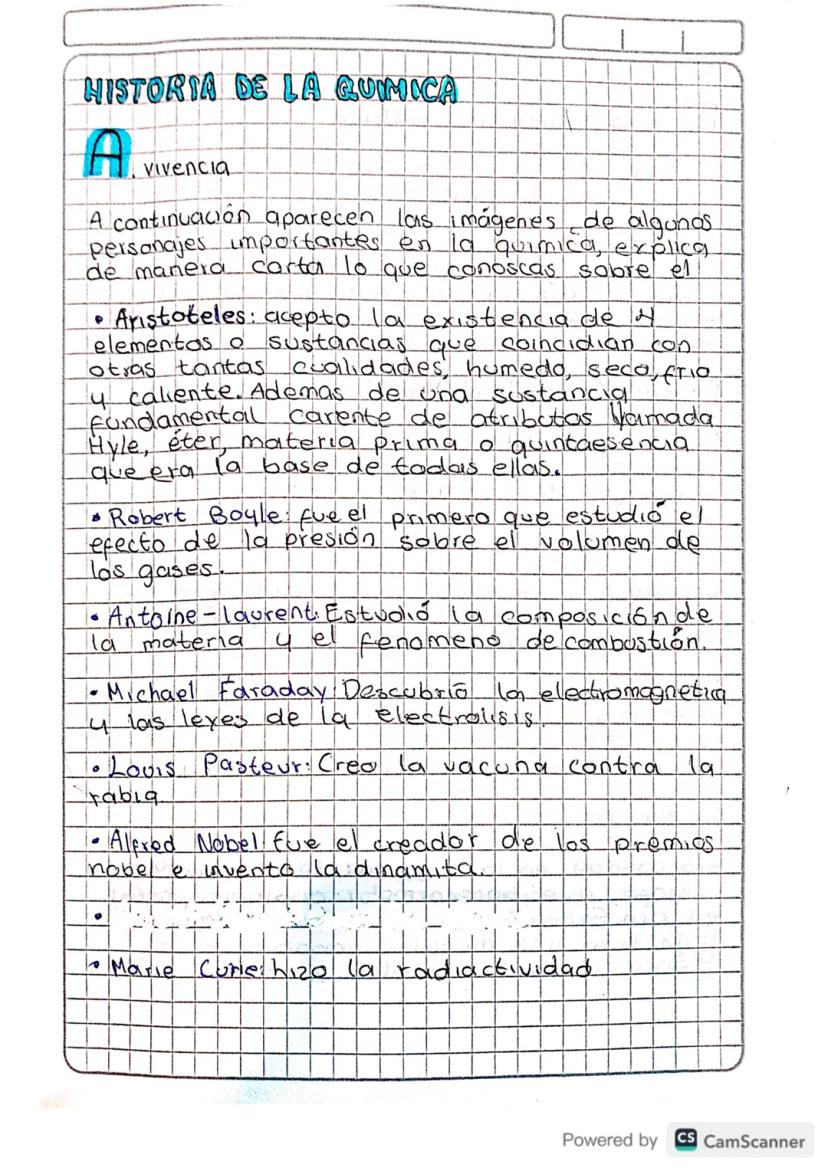 HISTORIA DE LA QUIMICA
A. vivencia
A continuación aparecen las imágenes de algunos
personajes importantes en la quimica, explica
de manera corta lo que conoscas sobre el
• Aristoteles: acepto la existencia de 4
elementos o sustancias que coincidian con
otras tantas cualidades, humedo, seco, frio
y caliente. Ademas de una sustancia
fundamental carente de atributos llamada
Hyle, éter, materia prima o quintaesencia
que era la base de todas ellas.
• Robert Boyle: fue el primero que estudió el
efecto de la presión sobre el volumen de
los gases.
• Antoine-laurent: Estudió la composición de
la materia y el fenomeno de combustión.
• Michael Faraday: Descubrió la electromagnetica
y las leyes de la electrolisis.
• Louis Pasteur: Creo la vacuna contra la
rabia
• Alfred Nobel: fue el creador de los premios
nobel e invento la dinamita.
•
• Marie Curie: hizo la radiactividad
Powered by CS CamScanner